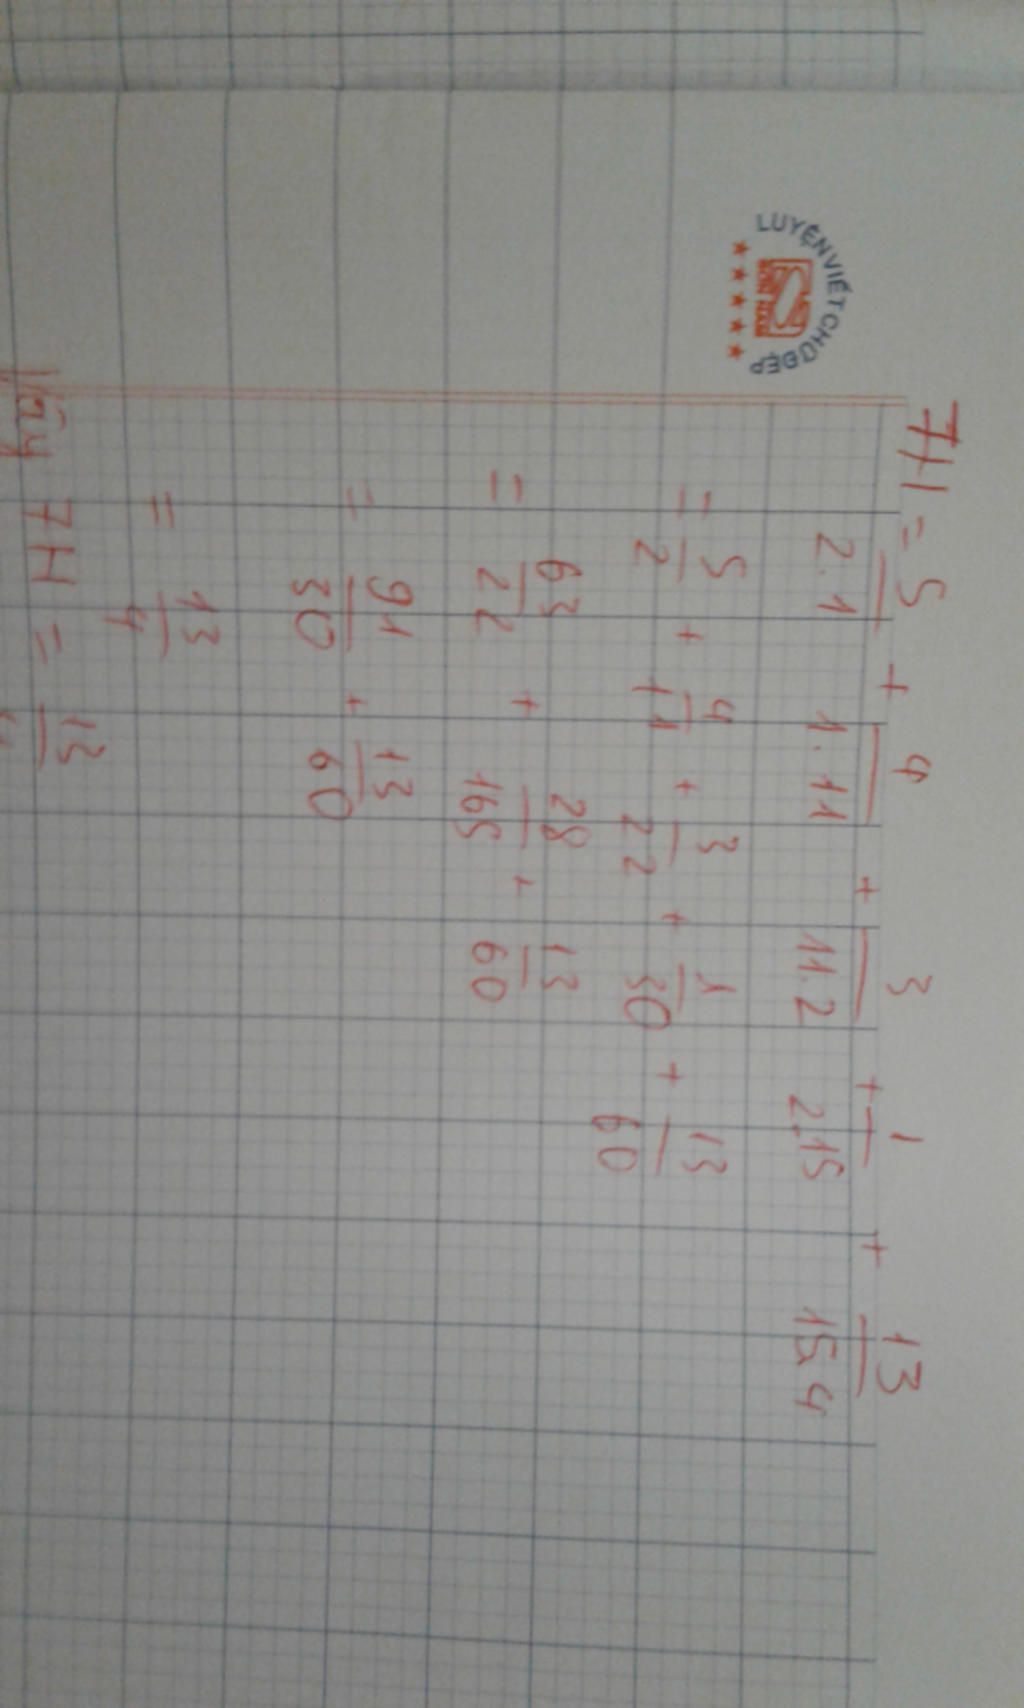 LUYỆN VIẾT CHỮ ĐẸP
7H = 5/2.1 + 4/1.11 + 3/11.2 + 1/2.15 + 13/15.4
= 5/2 + 4/11 + 3/22 + 1/30 + 13/60
= 63/22 + 28/165 + 13/60
= 91/30 + 13/60
= 13/4
Vậy 7H = 13/4